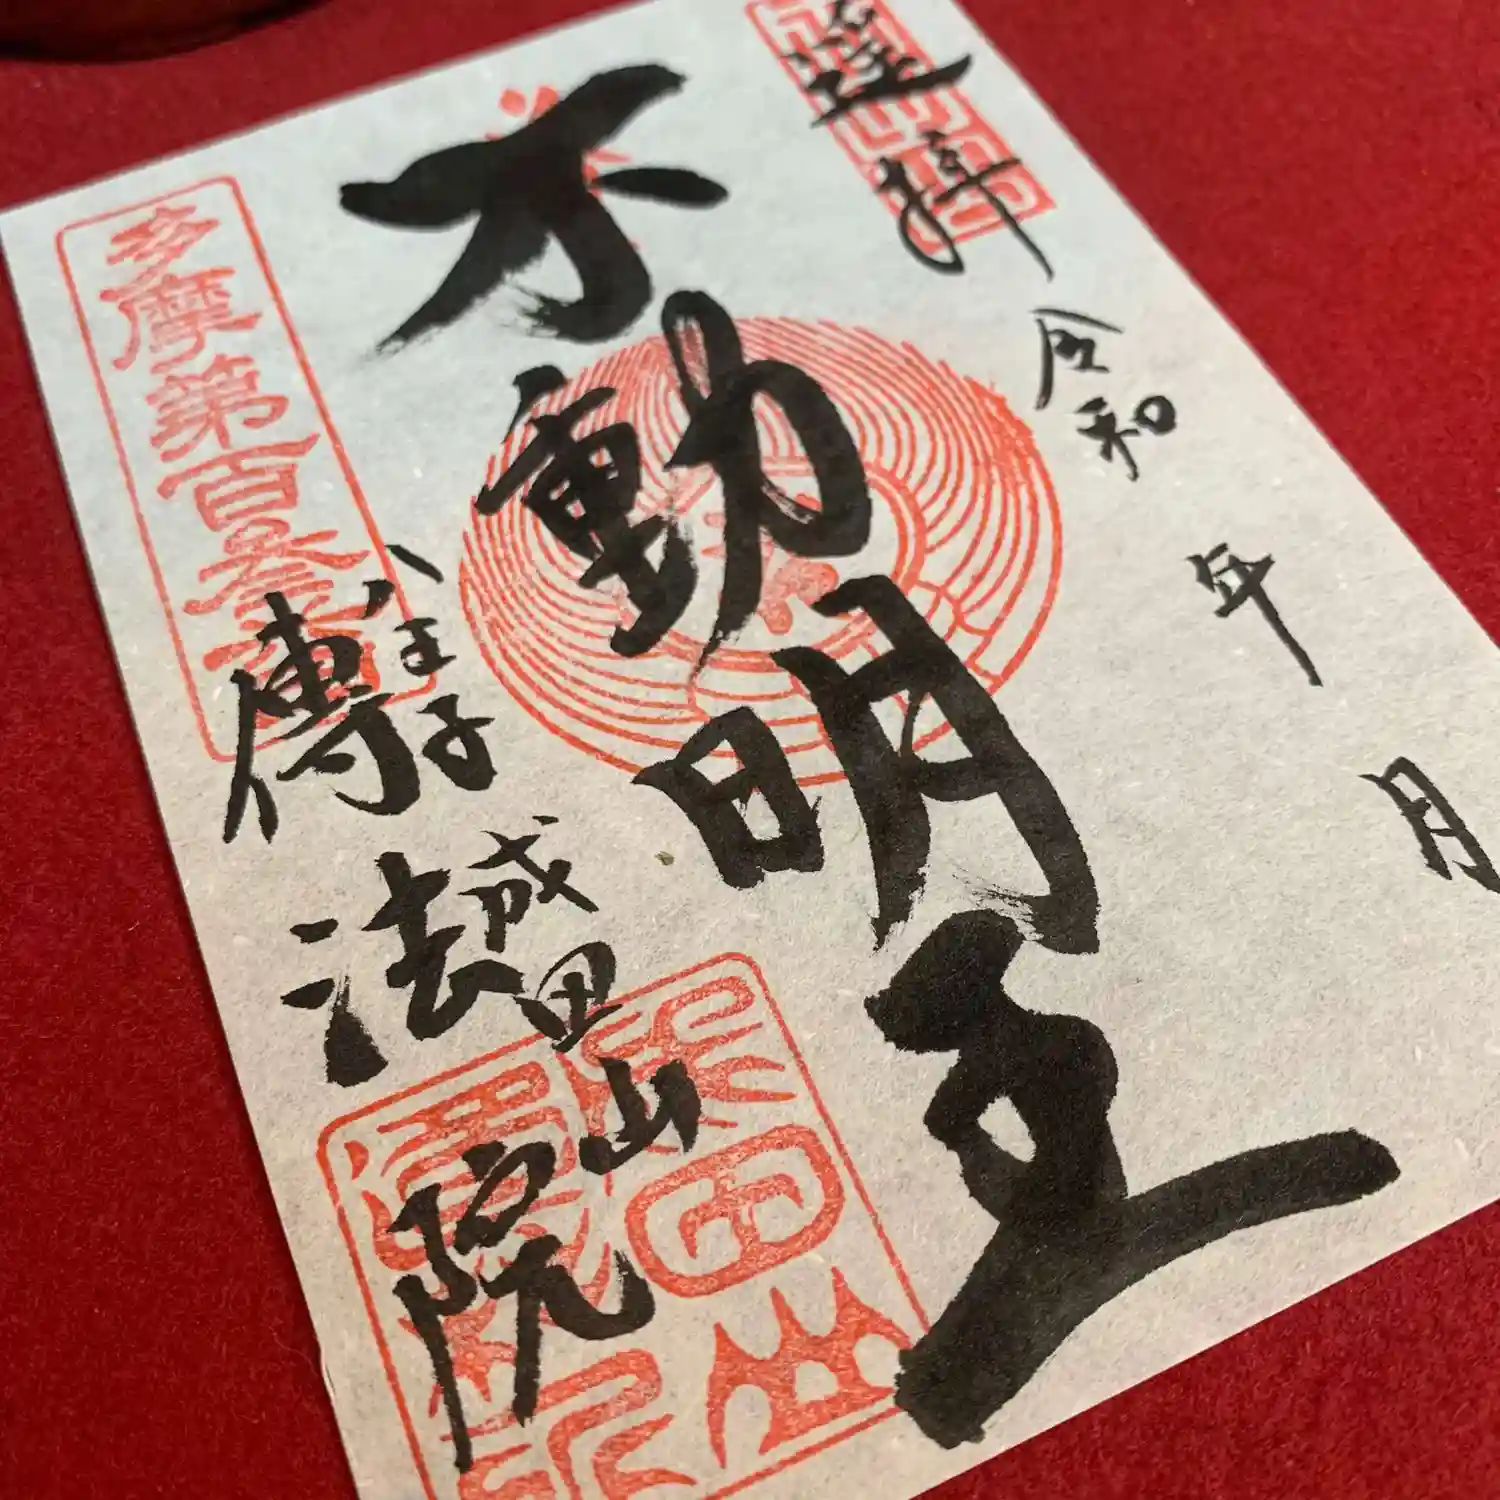 遥拝
令和 年 月
不動明王
八王子 成田山
傳法院
多摩第百参